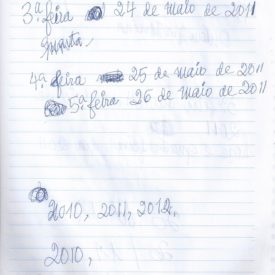 3ª feira 24 de maio de 2011
Quarta
4ª feira 25 de maio de 2011
5ª feira 26 de maio de 2011
2010, 2011, 2012.
2010,